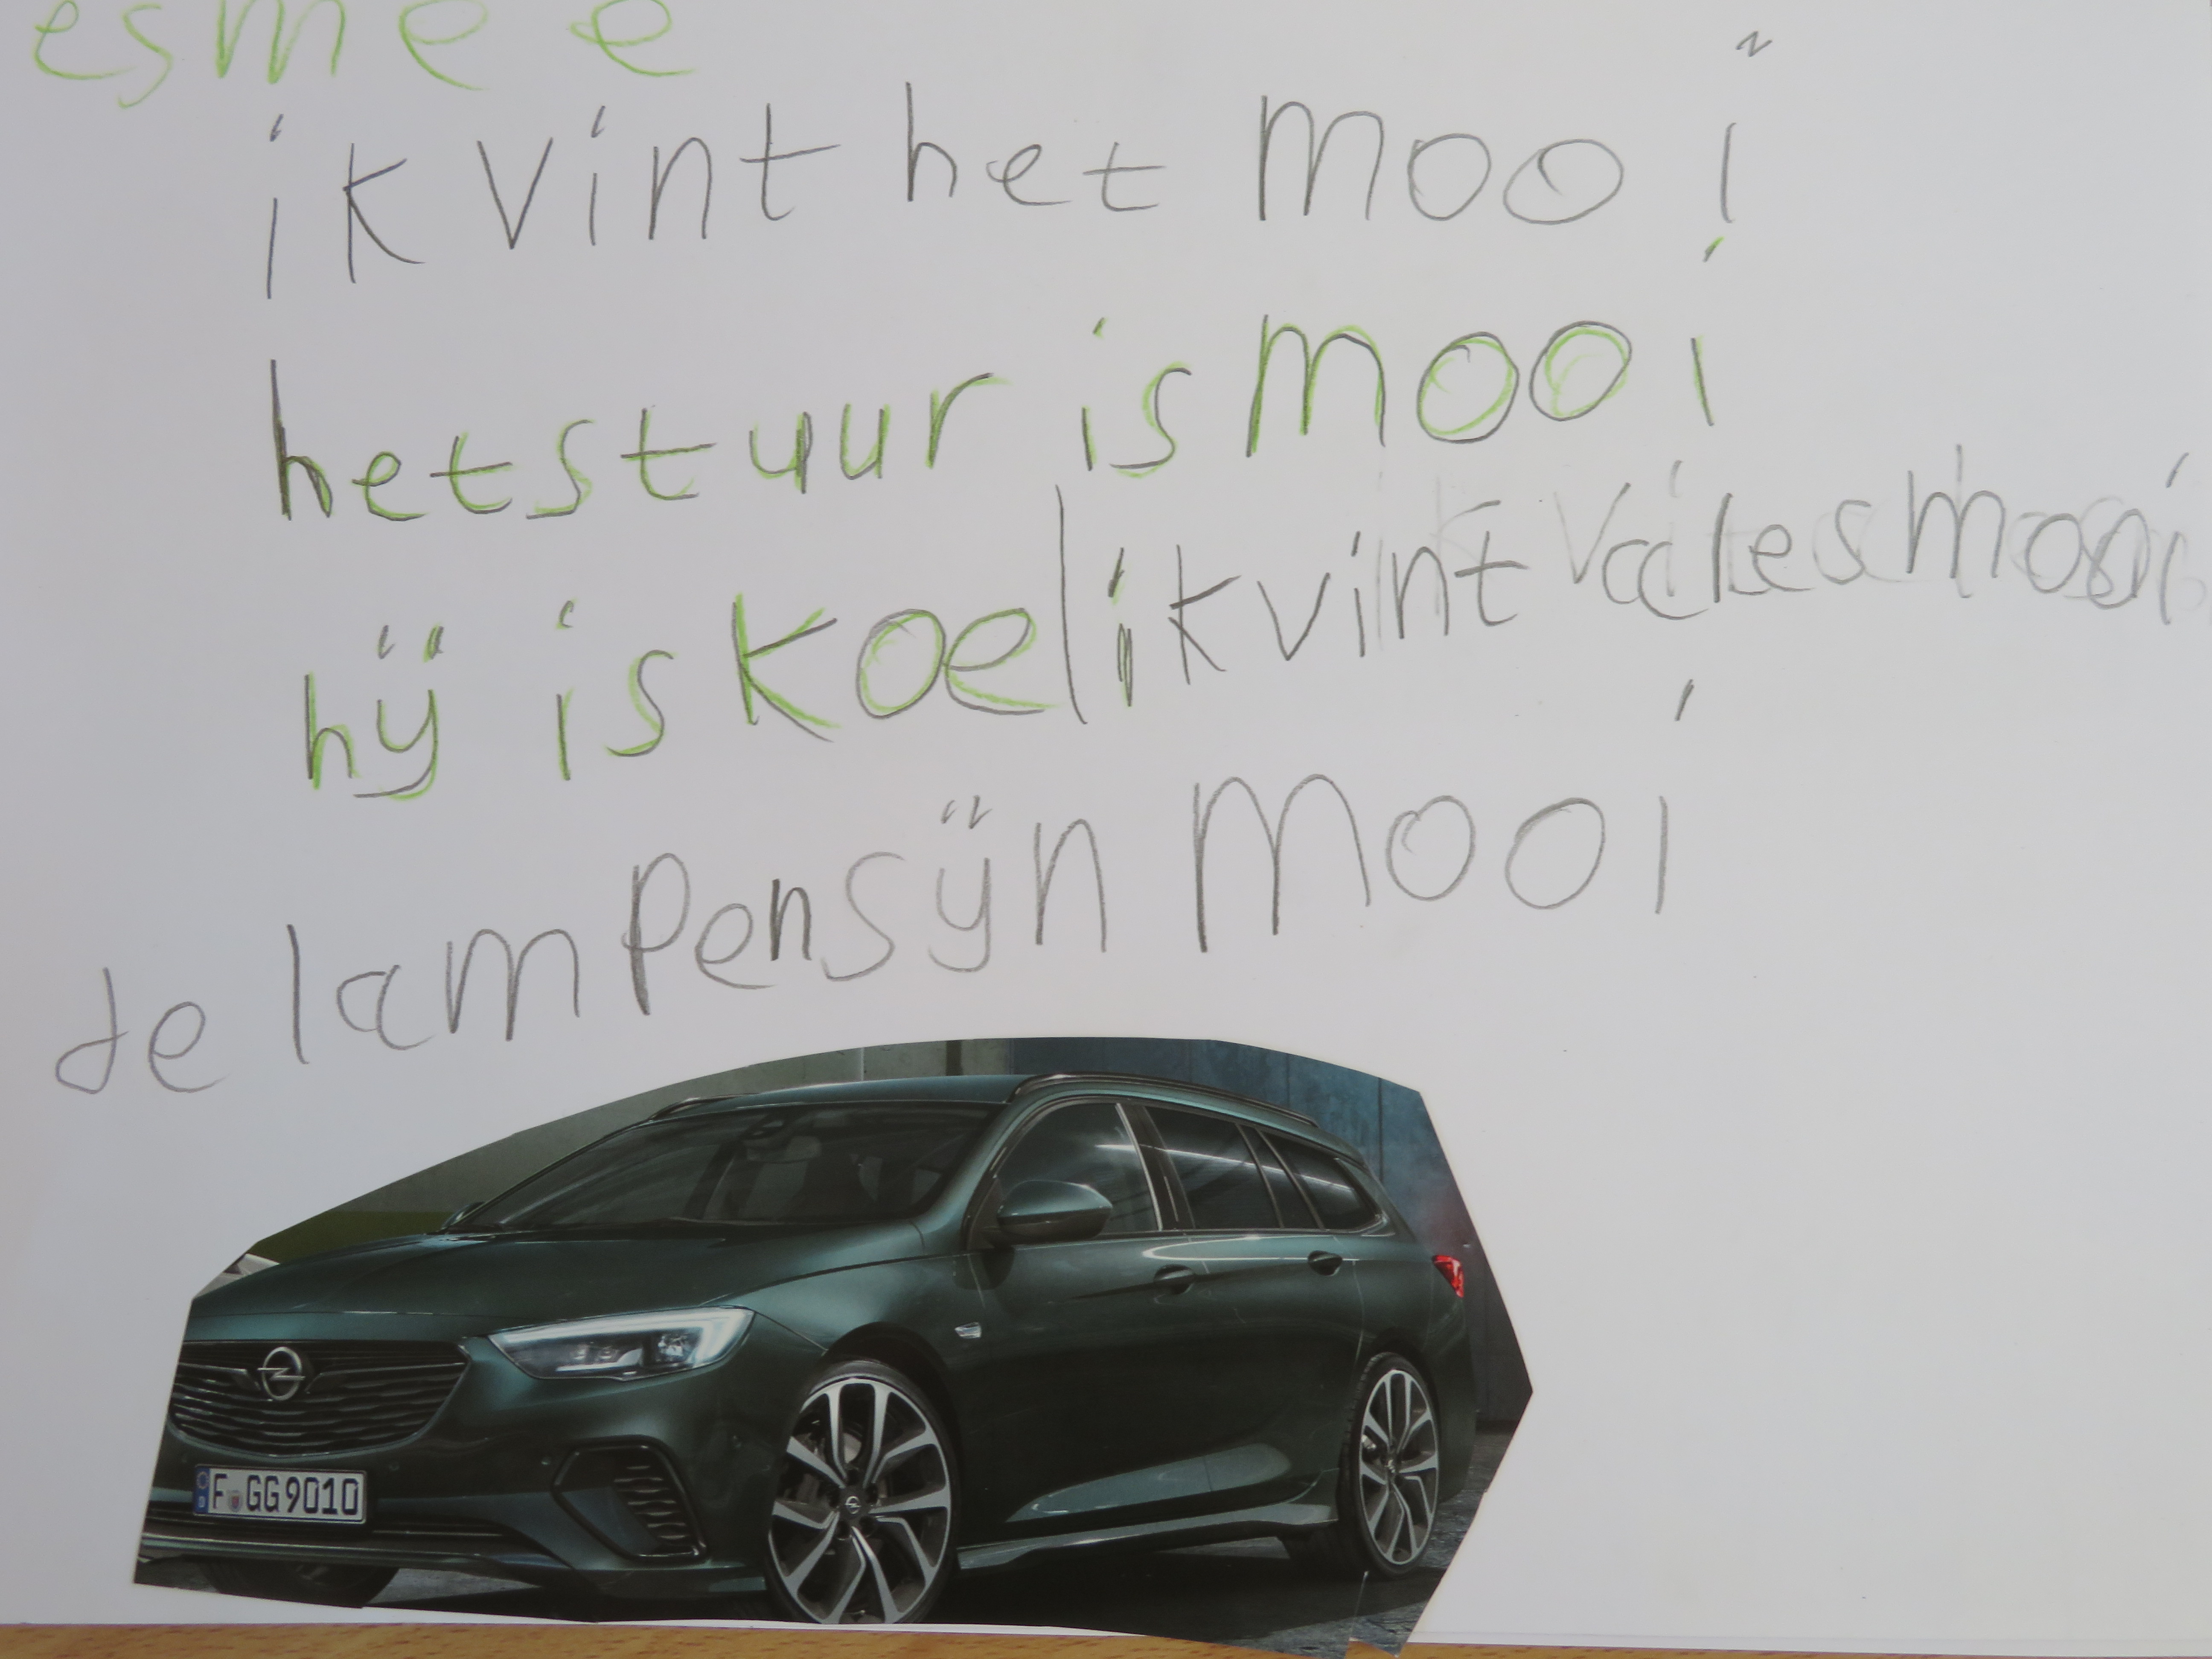 esmee
ik vint het mooi
het stuur is mooi
hij is koel ik vint ales mooi
de lampen sijn mooi
F GG 9010